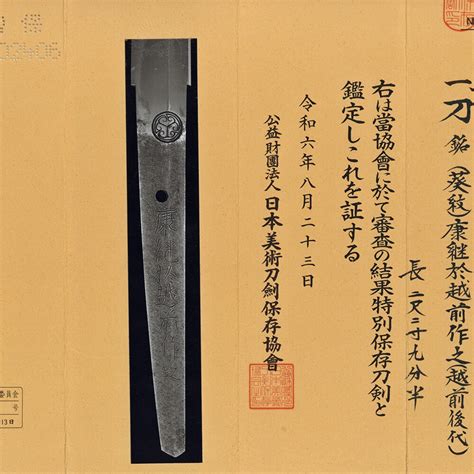 一、刀 銘(葵紋)康継於越前作之(越前後代)
長二尺二寸九分半
右は當協會に於て審査の結果特別保存刀剣と
鑑定しこれを証する
令和六年八月二十三日
公益財團法人日本美術刀劍保存協會
康継於越前作之
委員会
号
13日